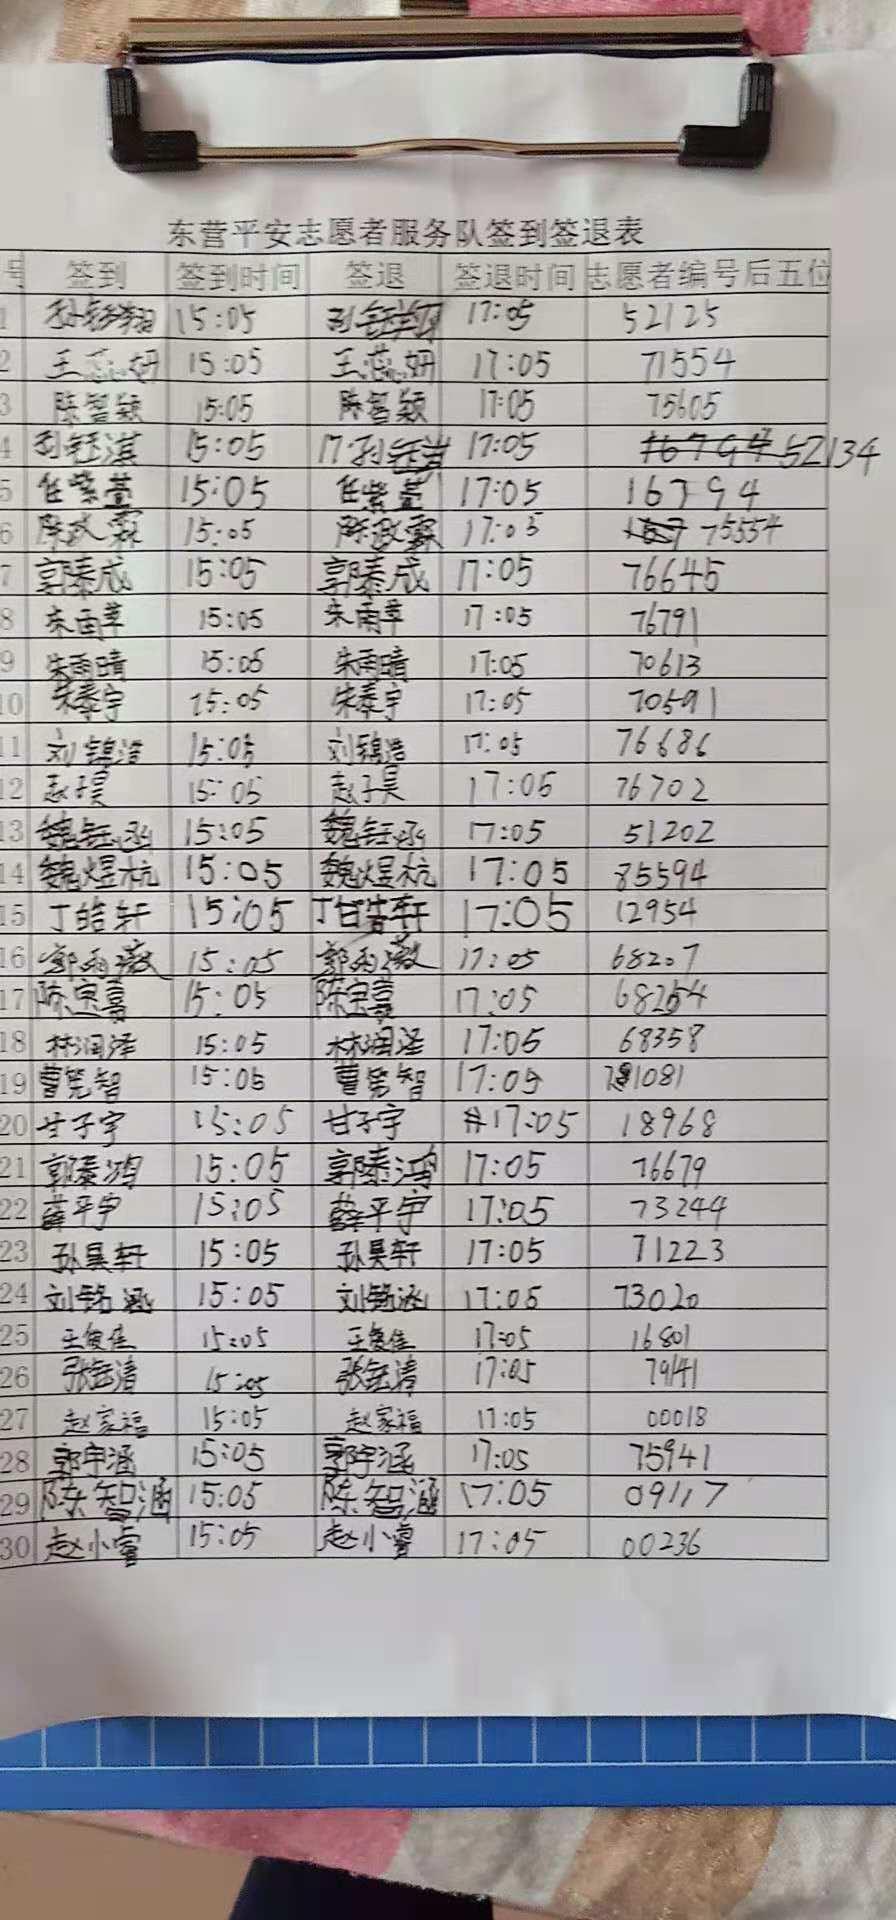 东营平安志愿者服务队签到签退表
号 签到 签到时间 签退 签退时间 志愿者编号后五位
1 孙钰翔 15:05 孙钰翔 17:05 52125
2 王蕊妍 15:05 王蕊妍 17:05 71554
3 陈智颖 15:05 陈智颖 17:05 75605
4 孙钰淇 15:05 17 孙钰淇 17:05 16794 52134
5 任紫萱 15:05 任紫萱 17:05 16794
6 陈政霖 15:05 陈政霖 17:05 167 75554
7 郭泰成 15:05 郭泰成 17:05 76645
8 朱雨苹 15:05 朱雨苹 17:05 76791
9 朱雨晴 15:05 朱雨晴 17:05 70613
10 朱泰宇 15:05 朱泰宇 17:05 70591
11 刘锦浩 15:05 刘锦浩 17:05 76686
12 赵子昊 15:05 赵子昊 17:05 76702
13 魏钰涵 15:05 魏钰涵 17:05 51202
14 魏煜杭 15:05 魏煜杭 17:05 85594
15 丁皓轩 15:05 丁皓轩 17:05 12954
16 郭雨薇 15:05 郭雨薇 17:05 68207
17 陈宝嘉 15:05 陈宝嘉 17:05 68254
18 林润泽 15:05 林润泽 17:05 68358
19 曹笕智 15:05 曹笕智 17:05 781081
20 甘子宇 15:05 甘子宇 17:05 18968
21 郭泰鸿 15:05 郭泰鸿 17:05 76679
22 薛平宇 15:05 薛平宇 17:05 73244
23 孙昊轩 15:05 孙昊轩 17:05 71223
24 刘铭涵 15:05 刘铭涵 17:05 73020
25 王俊佳 15:05 王俊佳 17:05 16801
26 张钰清 15:05 张钰清 17:05 79141
27 赵家福 15:05 赵家福 17:05 00018
28 郭宇涵 15:05 郭宇涵 17:05 75941
29 陈智涵 15:05 陈智涵 17:05 09117
30 赵小睿 15:05 赵小睿 17:05 00236